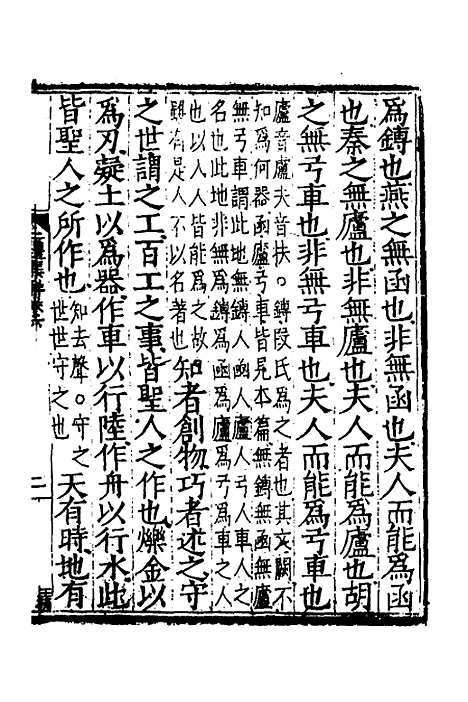 爲鎛也燕之無函也非無函也夫人而能爲函
也秦之無廬也非無廬也夫人而能爲廬也胡
之無弓車也非無弓車也夫人而能爲弓車也
廬音盧夫音扶。鎛段氏爲之者也其文闕不
知爲何器函廬弓車皆見本篇無鎛無函無廬
無弓車謂此地無鎛人函人廬人弓人車人之
名也此地非無鎛爲函爲廬爲弓爲車之人
也以人人皆能爲之故
雖有是人不以名著也
知者創物巧者述之守
之世謂之工百工之事皆聖人之作也爍金以
爲刃凝土以爲器作車以行陸作舟以行水此
皆聖人之所作也
知去聲。守之
世世守之也
天有時地有